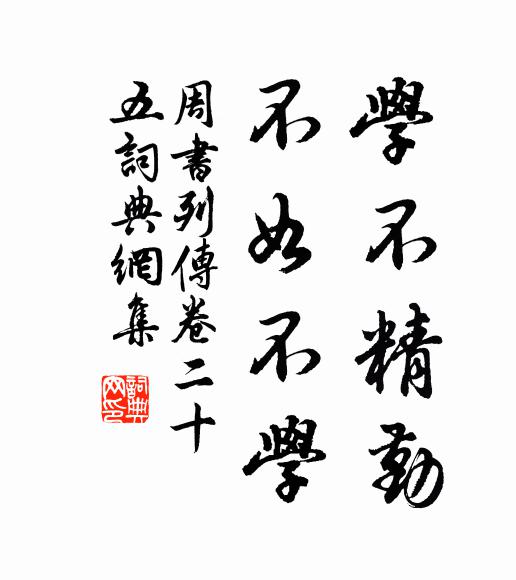 學不精勤
不如不學
周書列傳卷二十
五詞典網集
詞典
网印